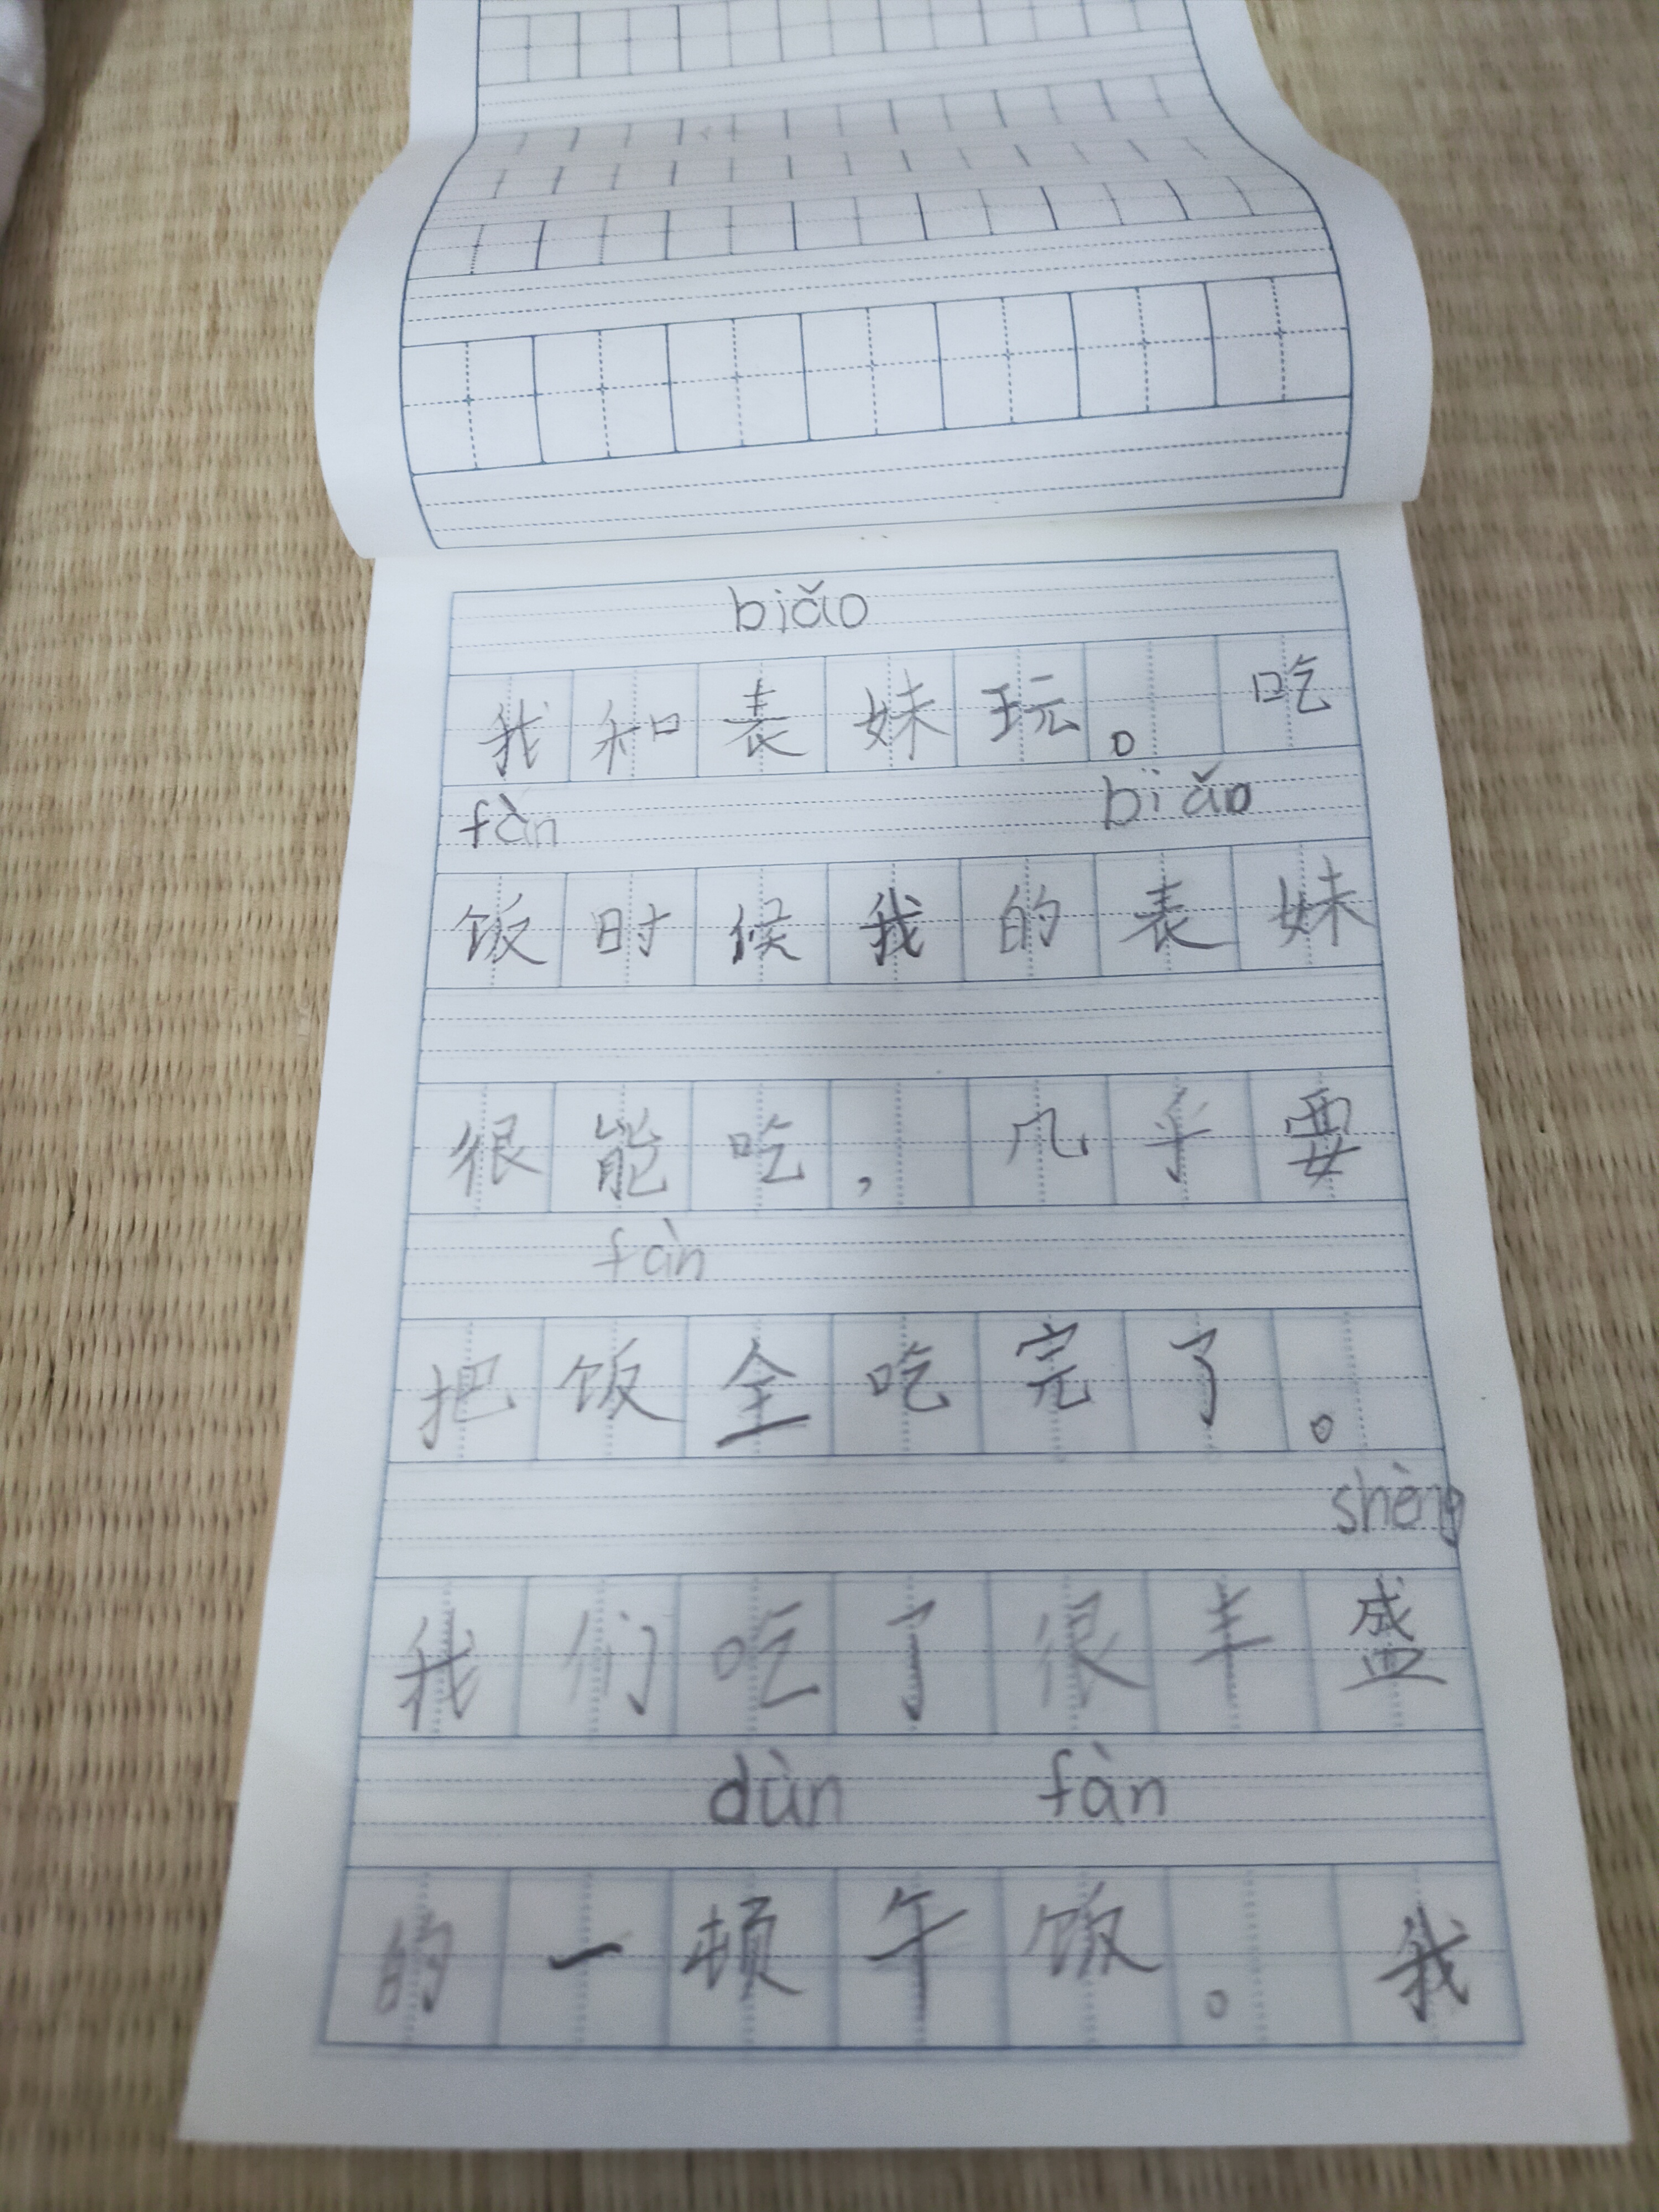 biǎo
我和表妹玩。吃
fàn biǎo
饭时候我的表妹
很能吃，几乎要
fàn
把饭全吃完了。
shèng
我们吃了很丰盛
dùn fàn
的一顿午饭。我